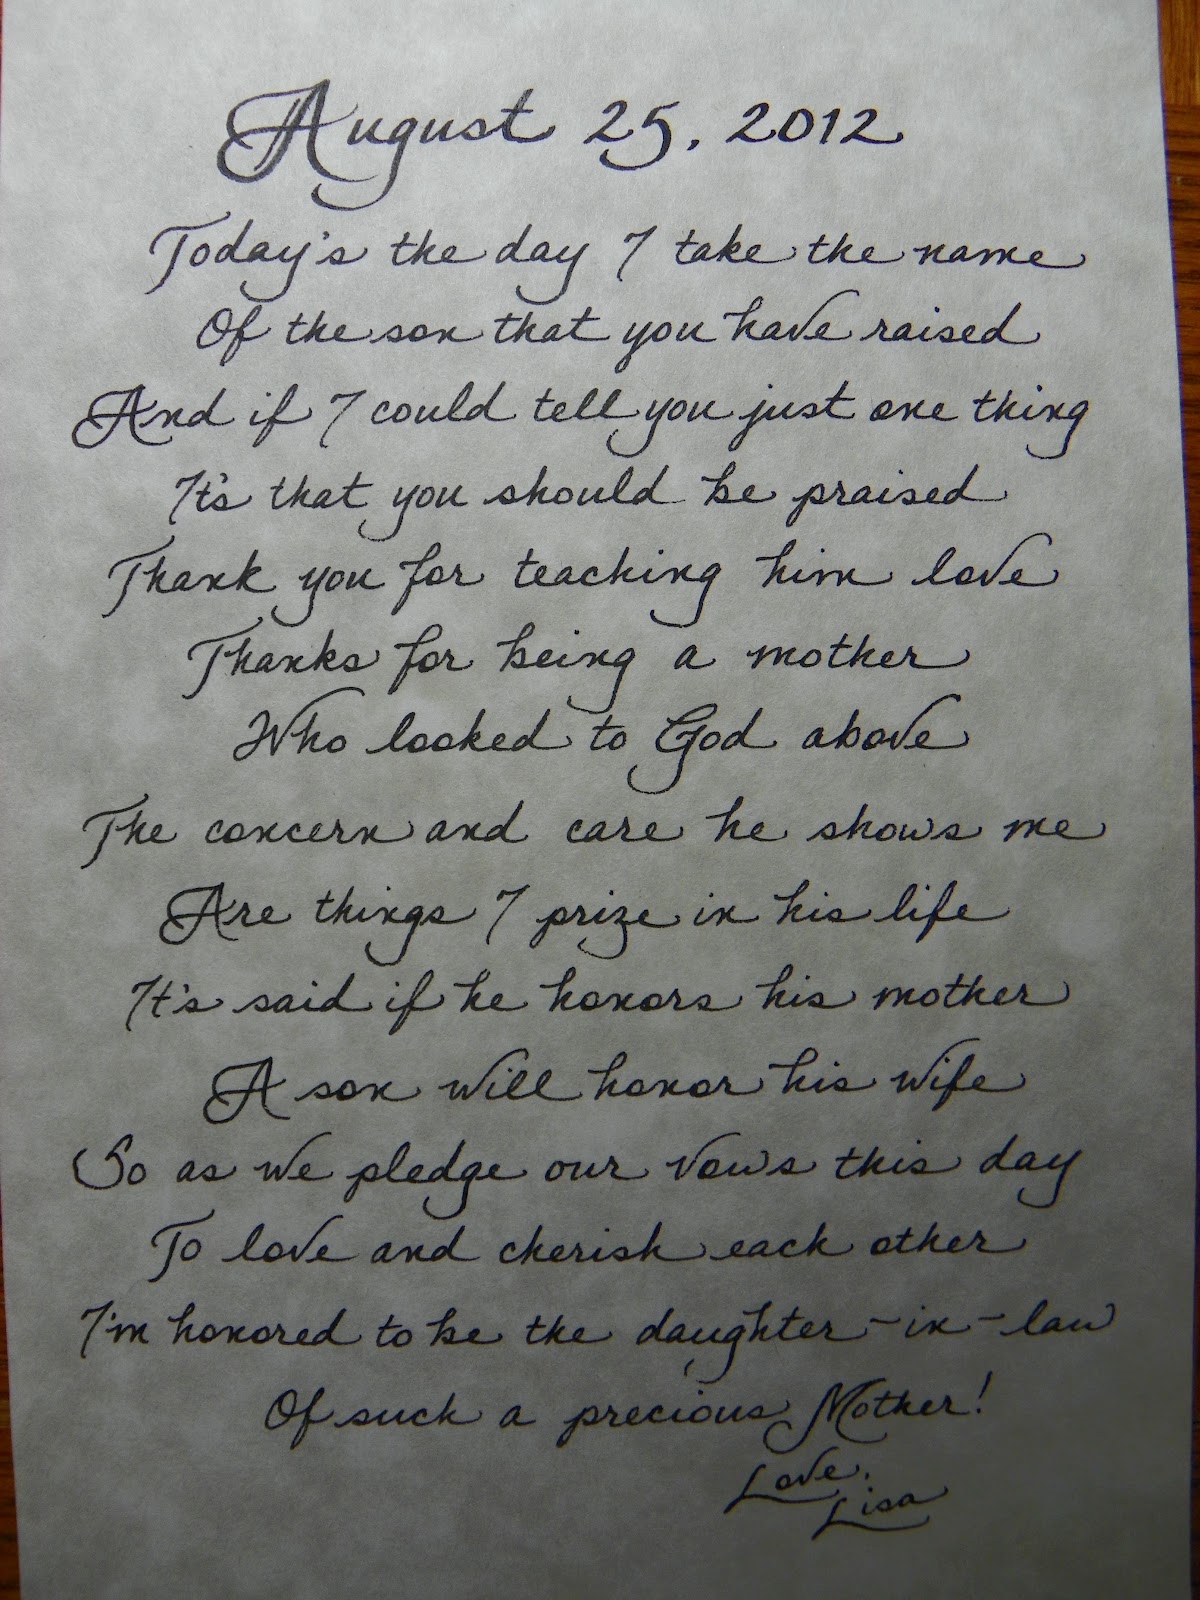 August 25, 2012
Today's the day I take the name
Of the son that you have raised
And if I could tell you just one thing
It's that you should be praised
Thank you for teaching him love
Thanks for being a mother
Who looked to God above
The concern and care he shows me
Are things I prize in his life
It's said if he honors his mother
A son will honor his wife
So as we pledge our vows this day
To love and cherish each other
I'm honored to be the daughter-in-law
Of such a precious Mother!
Love,
Lisa